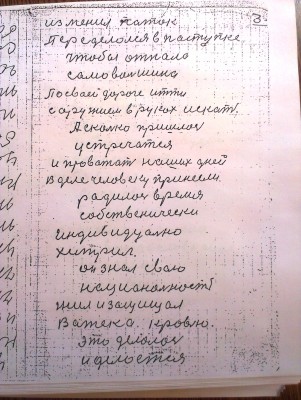 3
изменил паток
Переделолся в паступке
чтобы отпало
самоволшина
По сваей дороге итти
с аружием в руках искат.
А сколко пришлос
устречатся
и проватат наших дней
В деле человеку принесли.
радилос время
собственически
индивидуално
хитрил.
он знал сваю
национолность
жил и защищал
В атека. кровлю.
это делолос
и делоется